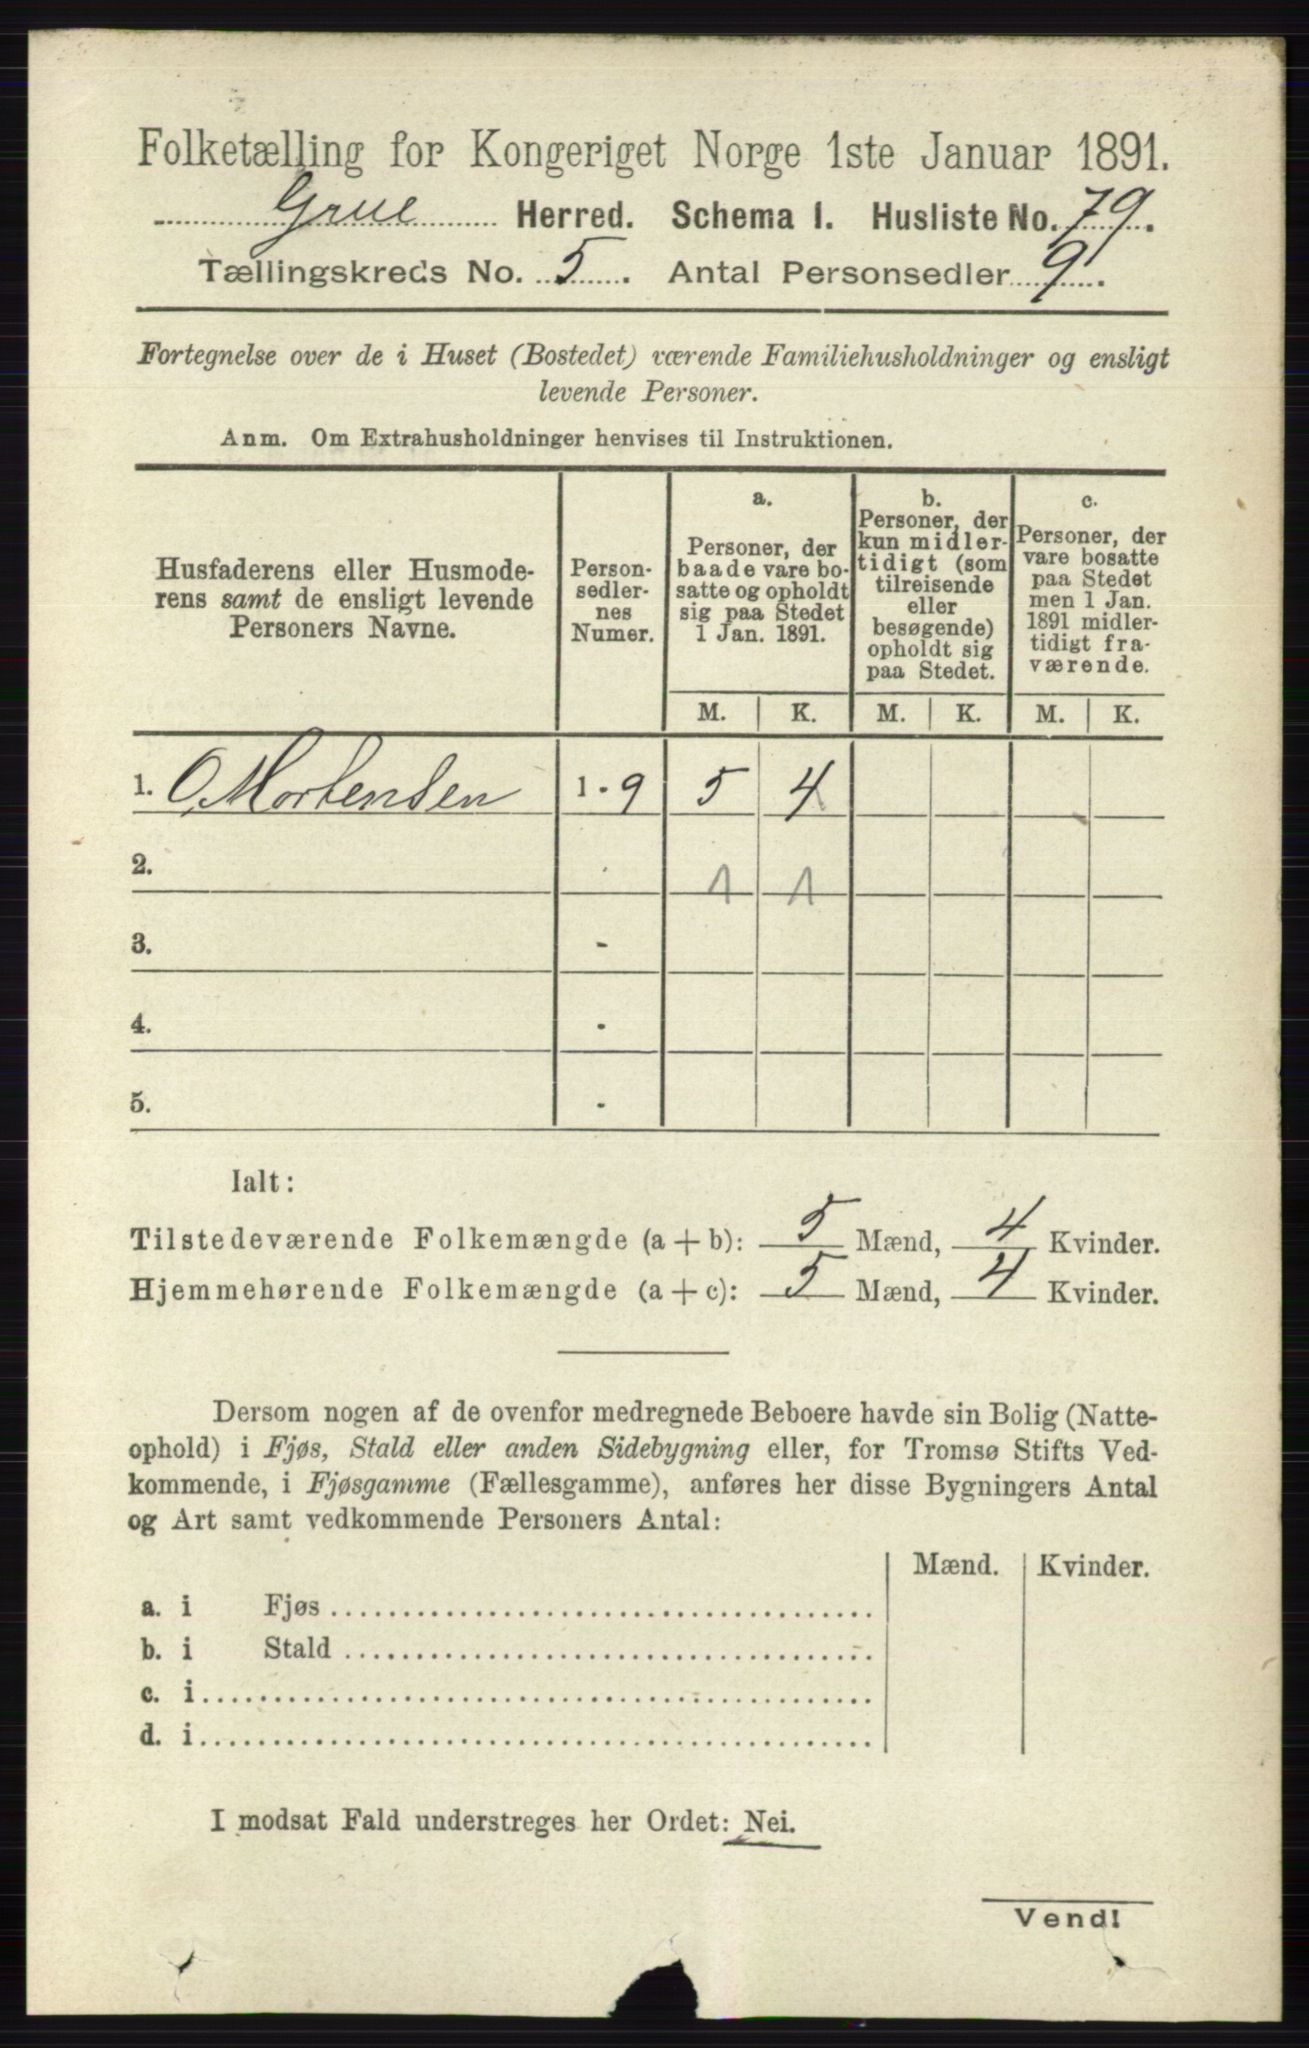 Folketælling for Kongeriget Norge 1ste Januar 1891.
Grue Herred. Schema I. Husliste No. 79.
Tællingskreds No. 5. Antal Personsedler 9.
Fortegnelse over de i Huset (Bostedet) værende Familiehusholdninger og ensligt
levende Personer.
Anm. Om Extrahusholdninger henvises til Instruktionen.
Husfaderens eller Husmode-
rens samt de ensligt levende
Personers Navne.
Person-
sedler-
nes
Numer.
a.
Personer, der
baade vare bo-
satte og opholdt
sig paa Stedet
1 Jan. 1891.
b.
Personer, der
kun midler-
tidigt (som
tilreisende
eller
besøgende)
opholdt sig
paa Stedet.
c.
Personer, der
vare bosatte
paa Stedet
men 1 Jan.
1891 midler-
tidigt fra-
værende.
M. K. M. K. M. K.
1. O Mortensen 1 - 9 5 4
2. 1 1
3. -
4. -
5. -
Ialt:
Tilstedeværende Folkemængde (a + b): 5 Mænd, 4 Kvinder.
Hjemmehørende Folkemængde (a + c): 5 Mænd, 4 Kvinder.
Dersom nogen af de ovenfor medregnede Beboere havde sin Bolig (Natte-
ophold) i Fjøs, Stald eller anden Sidebygning eller, for Tromsø Stifts Ved-
kommende, i Fjøsgamme (Fællesgamme), anføres her disse Bygningers Antal
og Art samt vedkommende Personers Antal:
Mænd. Kvinder.
a. i Fjøs
b. i Stald
c. i
d. i
I modsat Fald understreges her Ordet: Nei.
Vend!